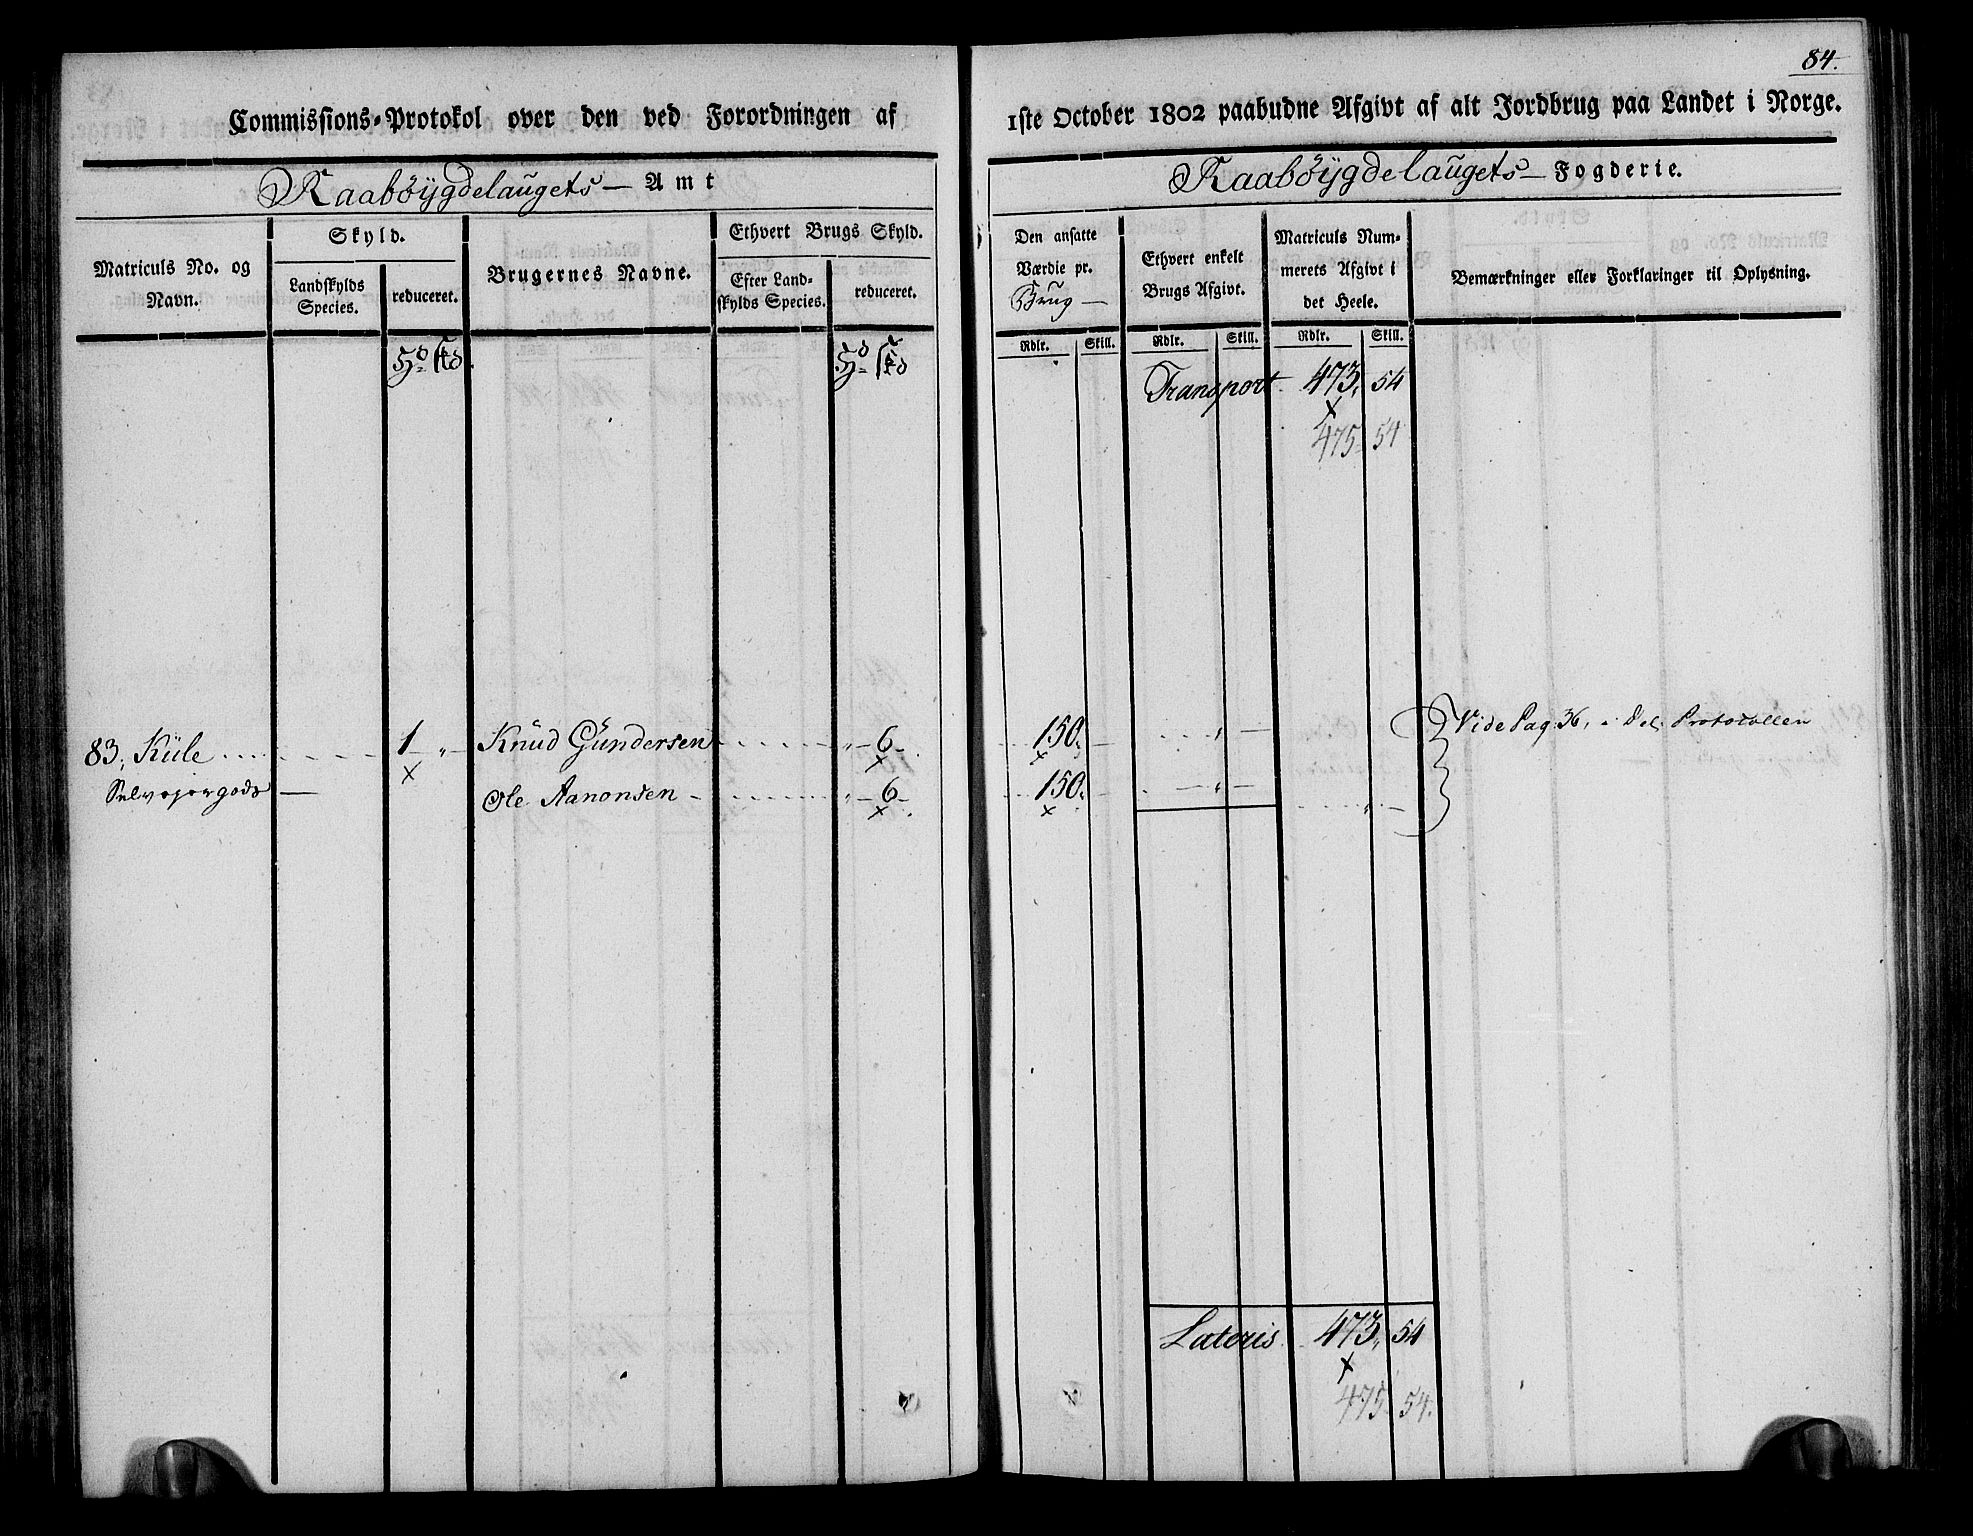 84.
Commissions-Protokol over den ved Forordningen af 1ste October 1802 paabudne Afgivt af alt Jordbrug paa Landet i Norge.
Raabøÿgdelaugets — Amt
Raabøÿgdelaugets — Fogderie.
Matriculs No. og Navn.
Skyld.
Landskylds Species.
reduceret.
Brugernes Navne.
Ethvert Brugs Skyld.
Efter Landskylds Species.
reduceret.
Den ansatte Værdie pr. Brug —
Ethvert enkelt Brugs Afgivt.
Matriculs Nummerets Afgivt i det Heele.
Bemærkninger eller Forklaringer til Oplysning.
Rdlr. Skill. Rdlr. Skill. Rdlr. Skill.
Transport 473, 54
475 54
83, Küle 1 „ Knud Gundersen „ 6 150, „ Vide Pag 36, i Del Protocollen
Selvejergods — Ole Aanonsen „ 6 150, „
Lateris 473, 54
475 54.